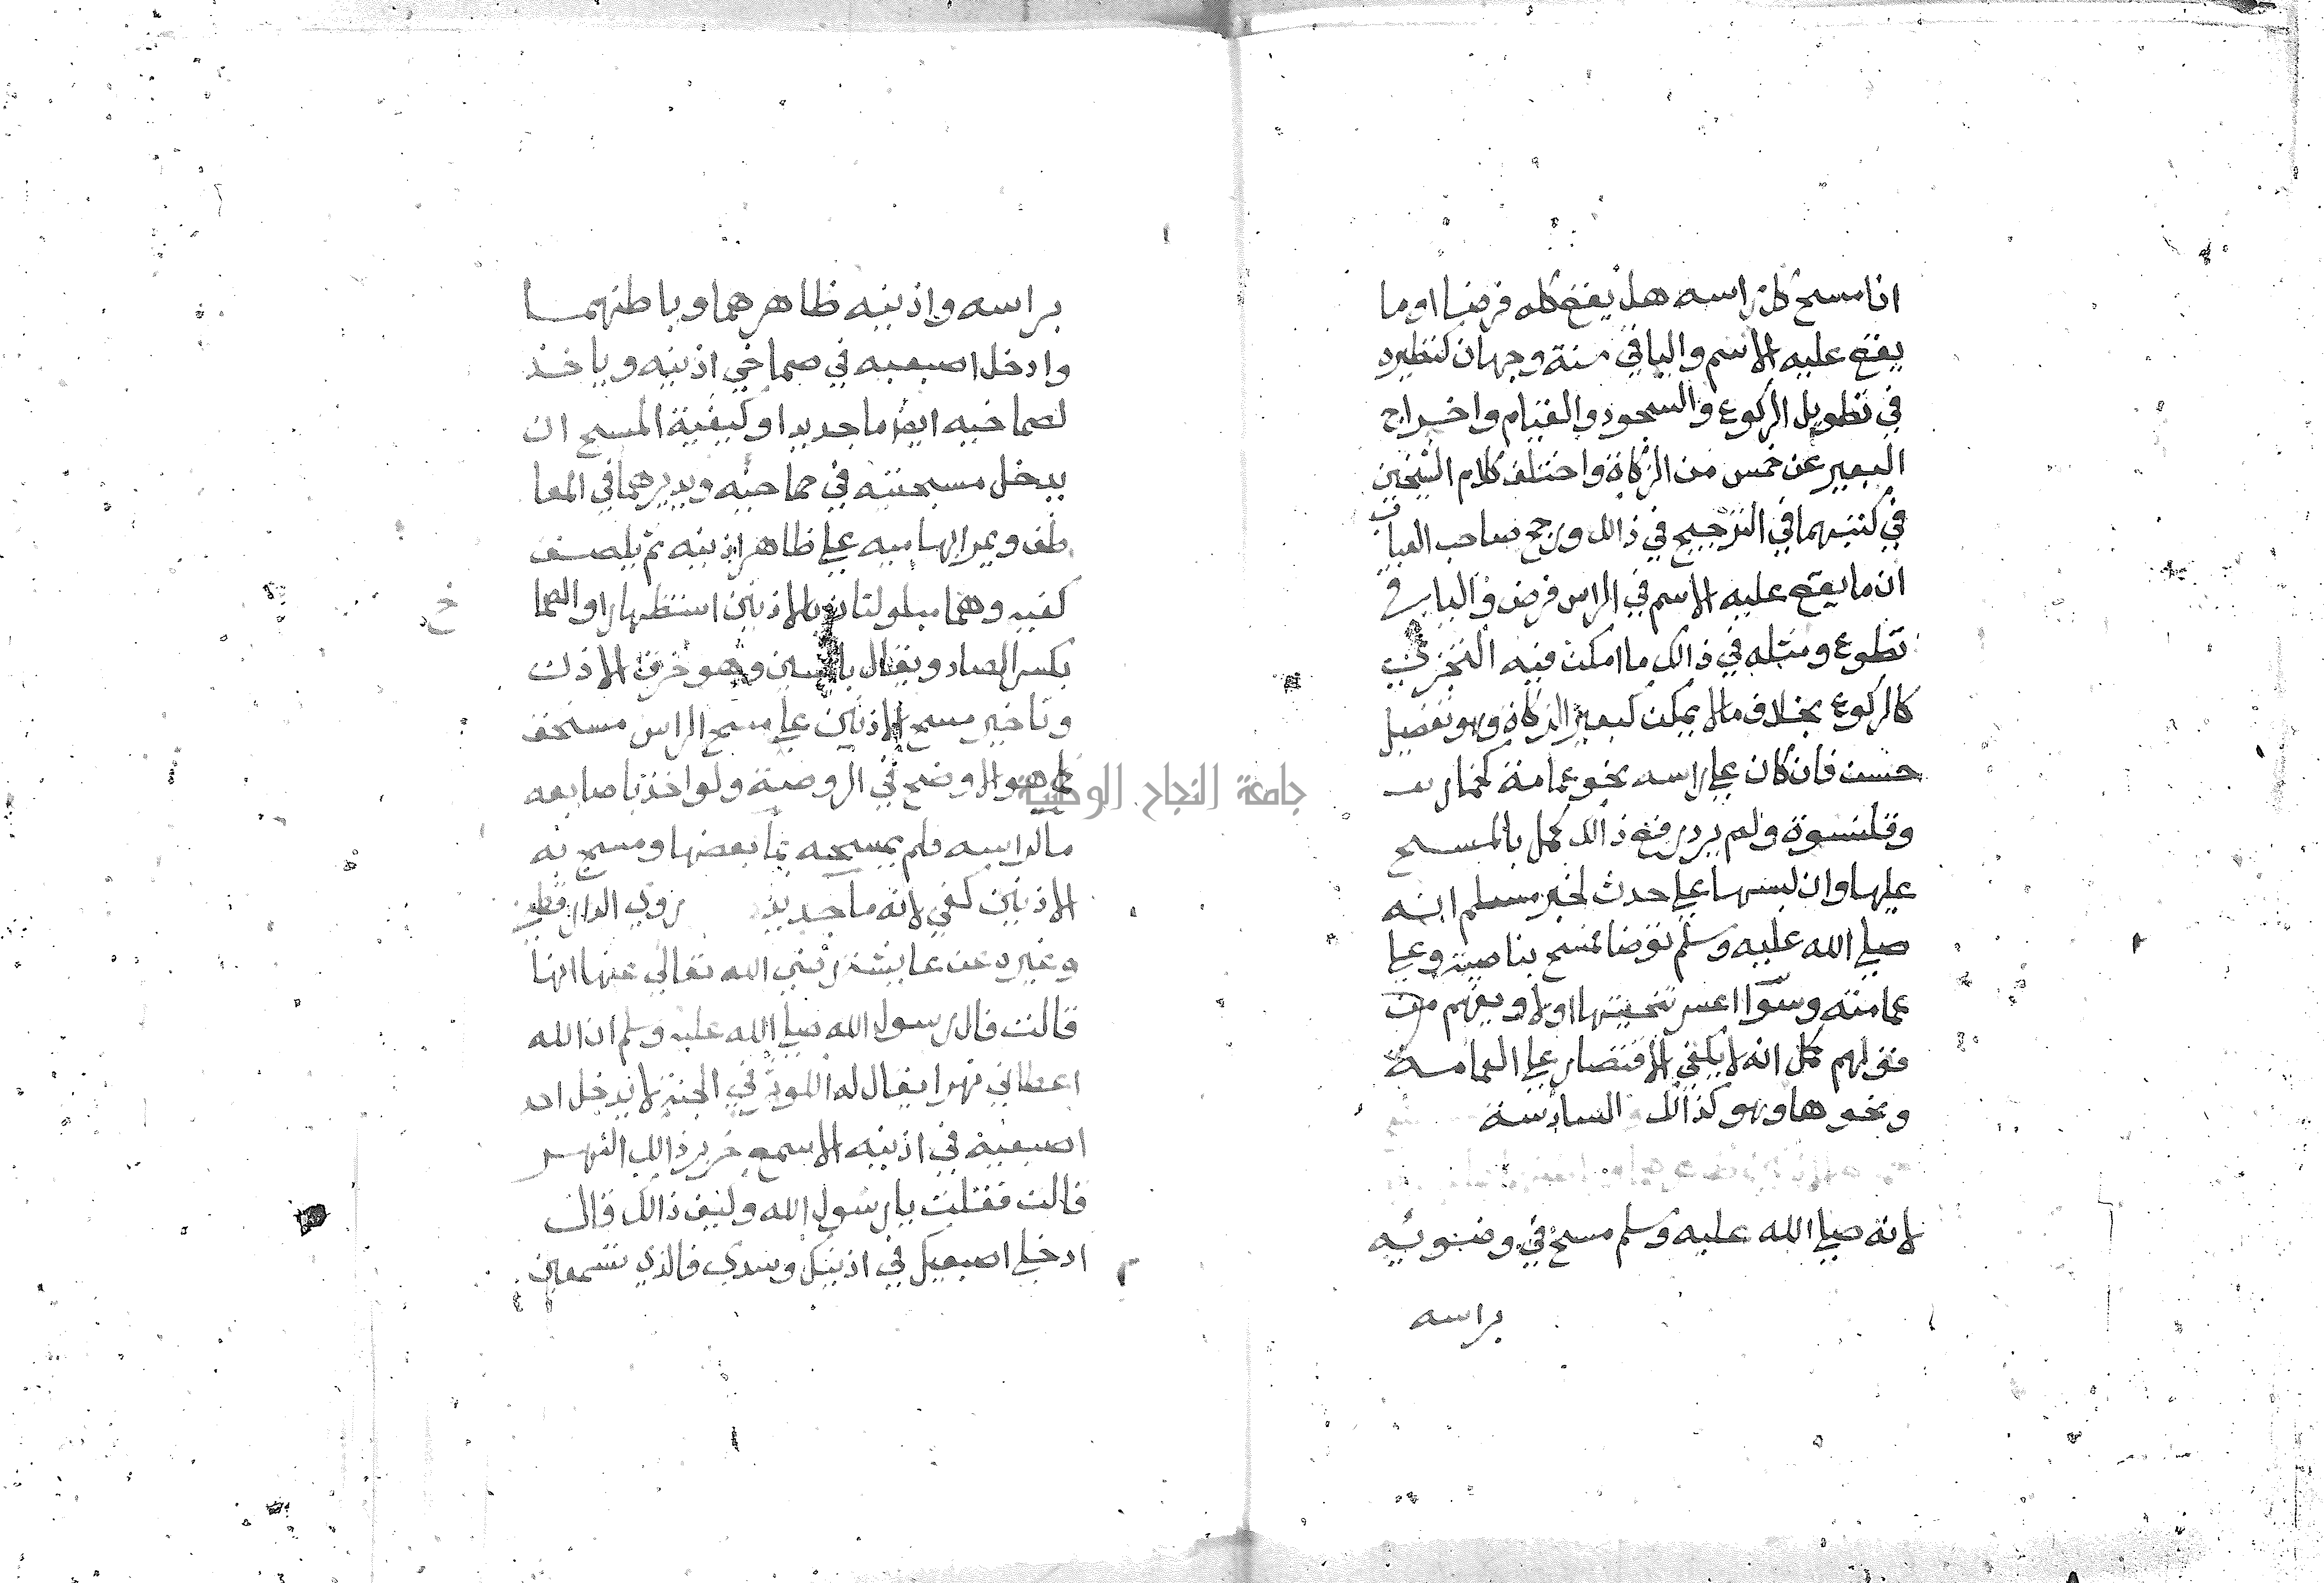 اذا مسح كل راسه هل يقع كله فرضا او ما
يقع عليه الاسم والباقي سنة وجهان كنظيره
في تطويل الركوع والسجود والقيام واخراج
البعير عن خمس من الزكاة واختلف كلام الشيخين
في كتبهما في الترجيح في ذالك ورجح صاحب العباب
ان ما يقع عليه الاسم في الراس فرض والباقي
تطوع ومثله في ذالك ما امكن فيه التجزي
كالركوع بخلاف ما لا يمكن كبعير الزكاة وهو تفصيل
حسن فان كان علي راسه نحو عمامة كخمار
وقلنسوة ولم يرد رفع ذالك كمل بالمسح
عليها وان لبسها علي حدث لخبر مسلم انه
صلي الله عليه وسلم توضا فمسح بناصيته وعلي
عمامته وسوا اعسر تنحيتها اولا ويفهم من
قولهم كمل انه لا يكفي الاقتصار علي العمامة
ونحوها وهو كذالك السادسة
لانه صلي الله عليه وسلم مسح في وضوئه
براسه
براسه واذنيه ظاهرهما وباطنهما
وادخل اصبعيه في صماخي اذنيه وياخذ
لصماخيه ايضا ما جديدا وكيفية المسح ان
يدخل مسبحتيه في صماخيه ويديرهما في المعا
طف ويمر ابهاميه علي ظاهر اذنيه ثم يلصق
كفيه وهما مبلولتان بالاذنين استظهارا والصما
خ
بكسر الصاد ويقال بالسين وهو خرق الاذن
وتاخير مسح الاذنين علي مسح الراس مستحق
كما هو الاوضح في الروضة ولو اخذ باصابعه
ما لراسه فلم يمسحه بما بعضها ومسح به
الاذنين كفي لانه ما جديد روي الدارقطني
وغيره عن عايشة رضي الله تعالي عنها انها
قالت قال رسول الله صلي الله عليه وسلم ان الله
اعطاني نهرا يقال له الكوثر في الجنة لا يدخل احد
اصبعيه في اذنيه الا سمع خرير ذالك النهر
قالت فقلت يا رسول الله وكيف ذالك قال
ادخلي اصبعيك في اذنيك وسدي فالذي تسمعين
جامعة النجاح الوطنية